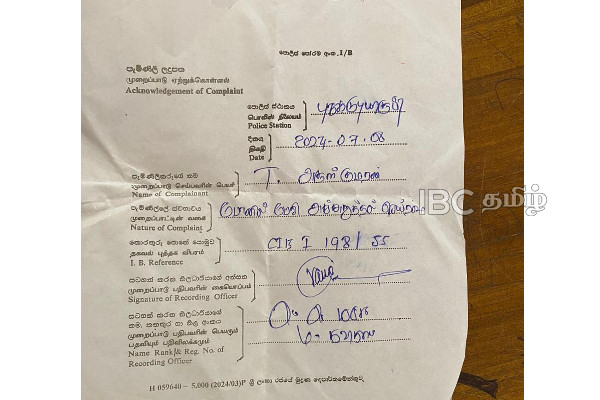 පොලිස් පෝරම අංක. I/B
පැමිණිලි ලදුපත
முறைப்பாடு ஏற்றுக்கொள்ளல்
Acknowledgement of Complaint
පොලිස් ස්ථානය
பொலிஸ் நிலையம்
Police Station
දිනය
திகதி
Date
2024-07.08
පැමිණිලිකරුගේ නම
முறைப்பாடு செய்பவரின் பெயர்
Name of Complainant
T.
පැමිණිල්ලේ ස්වභාවය
முறைப்பாட்டின் வகை
Nature of Complaint
தகவல் புத்தக விபரம்
I. B. Reference
CIB I 198/55
සටහන් කරන නිලධාරියාගේ අත්සන
முறைப்பாடு பதிபவரின் கையொப்பம்
Signature of Recording Officer
සටහන් කරන නිලධාරියාගේ
නම, තනතුර හා නිල අංකය
முறைப்பாடு பதிபவரின் பெயரும்
பதவியும் பதிவிலக்கமும்
Name Rank & Reg. No. of
Recording Officer
H 059640 - 5,000 (2024/03)P ශ්‍රී ලංකා රජයේ මුද්‍රණ දෙපාර්තමේන්තුව
IBC தமிழ்